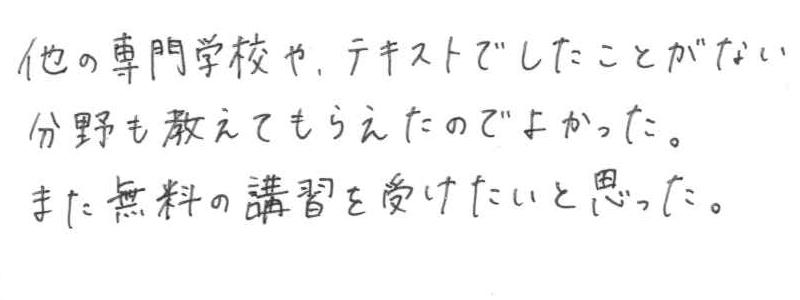 他の専門学校や、テキストでしたことがない
分野も教えてもらえたのでよかった。
また無料の講習を受けたいと思った。